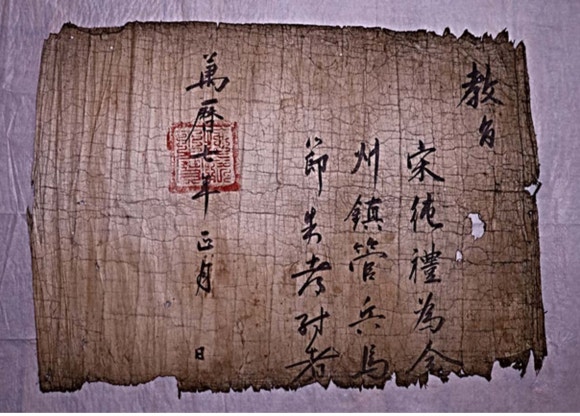 教旨
宋純禮為全
州鎮管兵馬
節制都尉者
萬曆七年正月 日